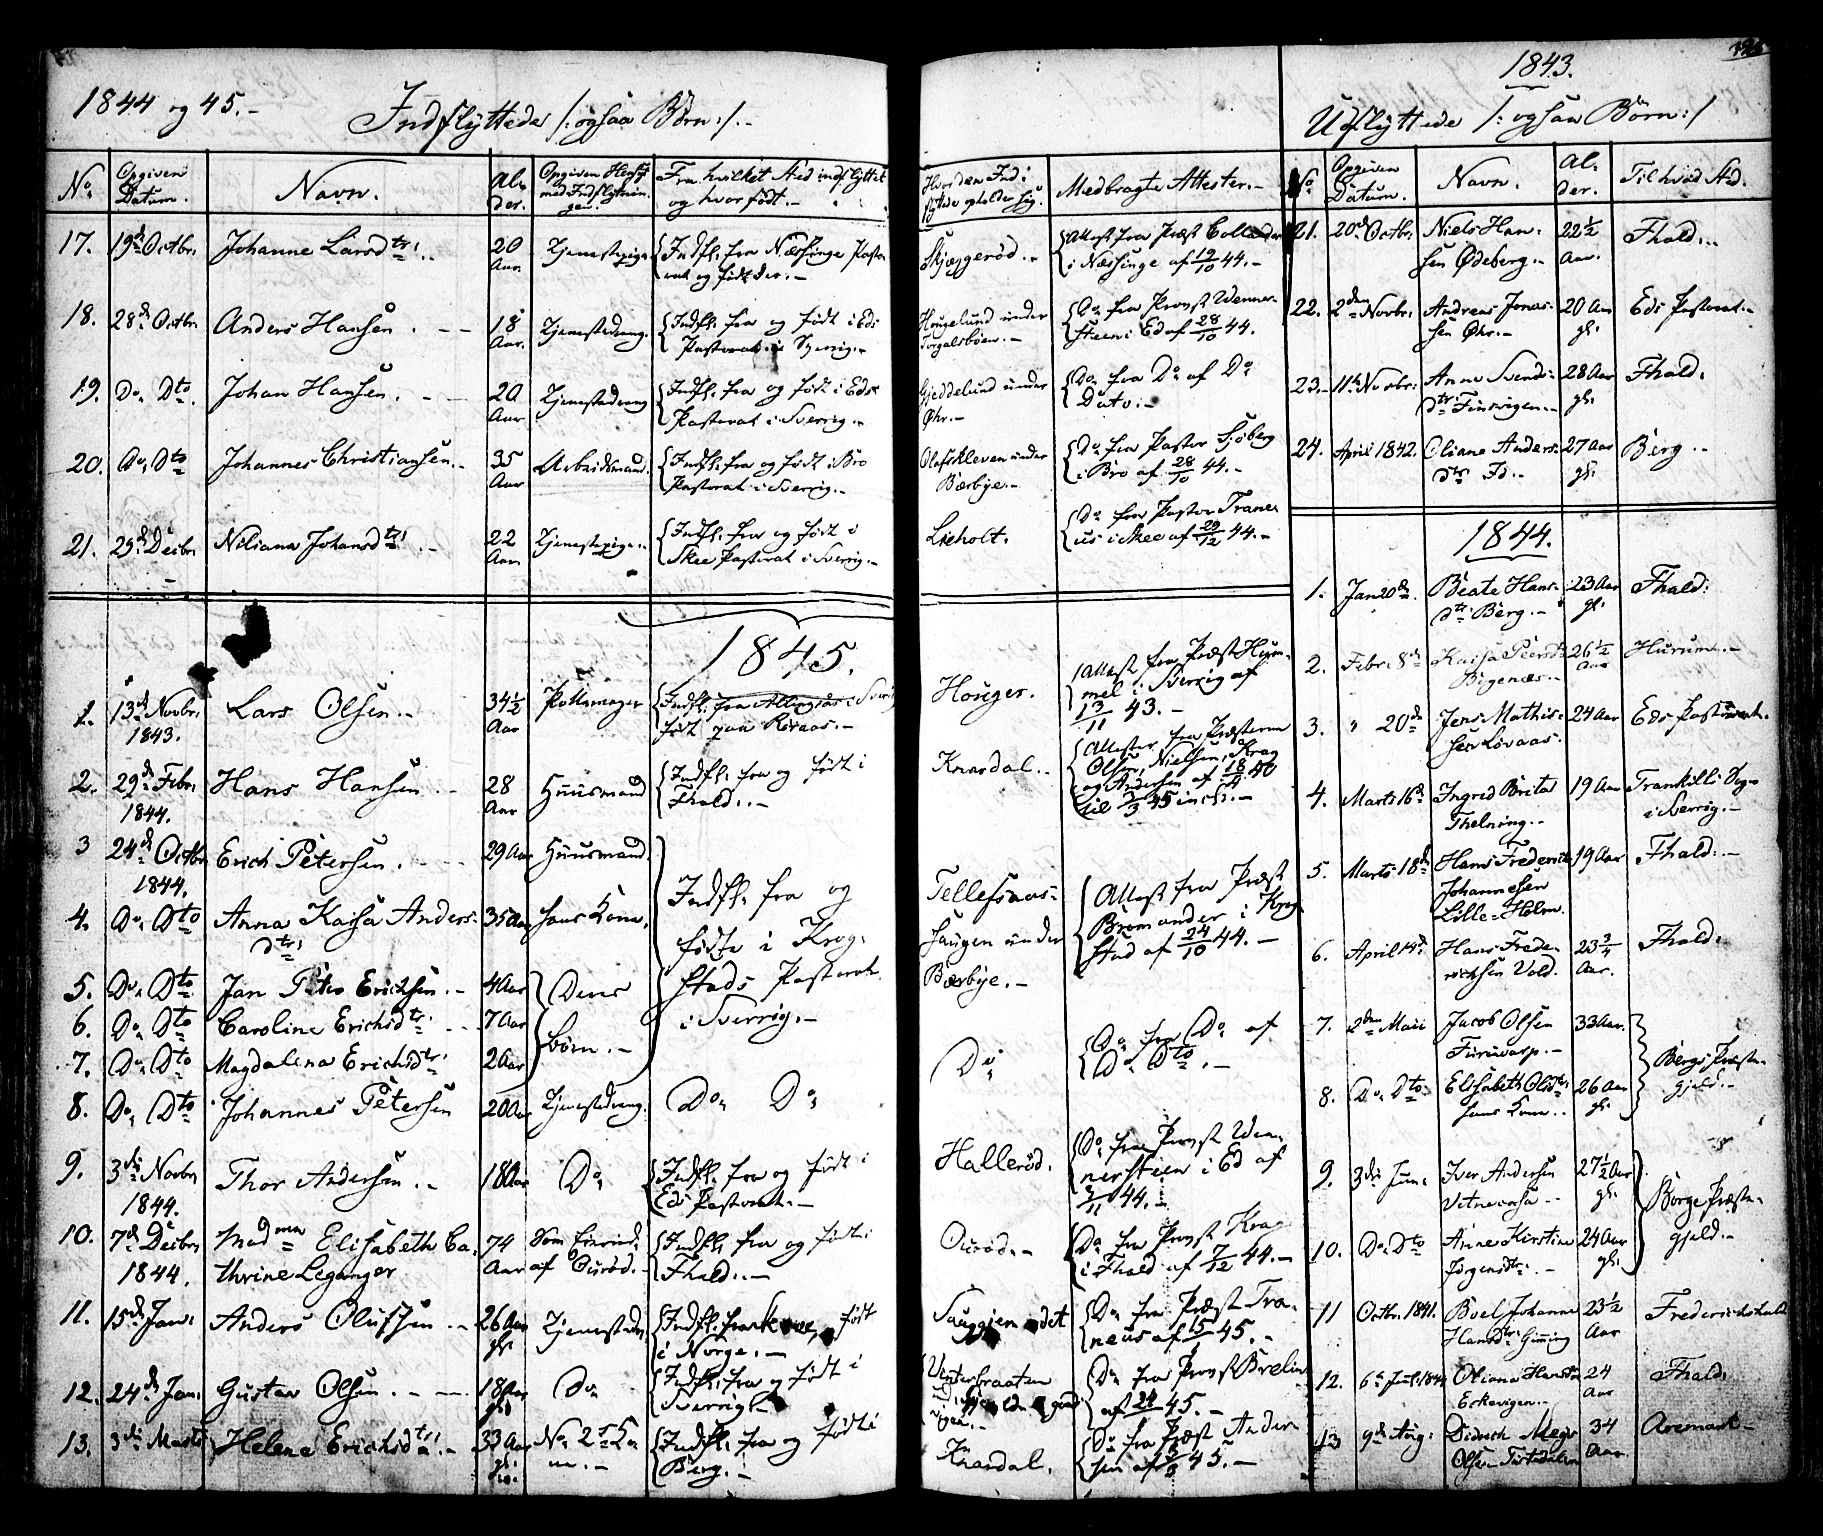 1844 og 45.-
Indflyttede /: ogsaa Børn :/.-
No.
Opgiven Datum.
Navn.
Alder.
Opgiven Hensigt med Indflytningen.
Fra hvilket Sted indflyttet og hvor født.-
Hvor den Indflyttede opholder sig.
Medbragte Attester.-
17. 19de Octbr. Johanne Larsdtr. 20 Aar. Tjenestepige Indfl. fra Næssinge Pastorat og født der.- Skjæggerød.- Attest fra Præst Collander i Næssinge af 19/10 44.-
18. 28de Octbr. Anders Hansen. 18 Aar. Tjenestedreng. Indfl. fra og født i Eds Pastorat i Sverrig.- Hougelund under Torgalsbøen.- Do. fra Provst Wennersteen i Ed af 28/10 44.
19. Do. Dto. Johan Hansen. 20 Aar Tjenestedreng Indfl. fra og født i Eds Pastorat i Sverrig.- Gjeddelund under Øhr.- Do. fra Do. af Do. Dato.-
20. Do. Dto Johannes Christiansen. 35 Aar Arbeidsmand. Indfl. fra og født i Bro Pastorat i Sverrig.- Olafskleven under Bærbye.- Do. fra Pastor Sjøberg i Bro af 28/10 44.-
21. 25de Decbr. Neliana Johansdtr. 22 Aar Tjenestepige. Indfl. fra og født i Skee Pastorat i Sverrig.- Lieholt. Do. fra Pastor Traneus i Skee af 20/12 44.-
1845.
1. 13de Novbr. 1843. Lars Olsen.- 34½ Aar Pottemager Indfl. fra i Sverrig født paa Houger. Attest fra Præst Hummel i Sverrig af 13/11 43.-
2. 29de Febr. 1844. Hans Hansen 28 Aar Huusmand Indfl. fra og født i Fhald.- Knardal.- Attester fra Præsterne Olsen, Nielsen, Krag og Andersen af 18/4 40 til 3/3 45 incl.-
3 24de Octbr. 1844. Erich Petersen. 29 Aar Huusmand. Indfl. fra og fødte i Krogstads Pastorat i Sverrig.- Tellefsaashaugen under Bærbye.- Attest fra Præst Bromander i Krogstad af 24/10 44.-
4. Do. Dto Anna Kaisa Andersdtr. 35 Aar hans Kone.
5. Do. Dto Jan Peter Erichsen.- 4 Aar Deres Børn.-
6. Do. Dto Caroline Erichsdtr. 7 Aar
7. Do. Dto Magdalena Erichsdtr. 2 Aar
8. Do. Dto Johannes Petersen 20 Aar Tjenestedreng. Do. Do. Do. Do. fra Do. af Do. Dto.-
9. 3die Novbr. 1844. Thor Andersen.- 18 Aar Do. Indfl. fra og født i Eds Pastorat.- Hallerød. Do. fra Provst Wennersteen i Ed af 2/11 44.-
10. 7de Decbr. 1844. Madme Elisabeth Cathrine Leganger 74 Aar af Ourød.- Indfl. fra og født i Fhald.- Ourød.- Do. fra Provst Krag i Fhald af 7/12 44.-
11. 15de Jan. Anders Olufsen 26 Aar gl. Tjenestedr. Indfl. fra Skee, født i Norge.- Do. fra Præst Traneus af 45.-
12. 24de Jan. Gustav Olsen. 18 Aar gl. Do. Indfl. fra og født i Sverrig.- Do. fra Provst Brelin af 45.-
13. 3die Marts Helene Erichsdtr.- 33 Aar gl. No. 2s Kone.- Indfl. fra og født i Berg.- Knardal. Do. fra Præst Andersen af 3/3 45.-
1843.
Udflyttede /: ogsaa Børn :/
No.
Opgiven Datum.
Navn.
Alder.
Til hvad Sted.
21. 20de Octbr. Niels Hansen Ødeberg.- 22½ Aar. Fhald.
22. 2den Novbr. Andreas Jonassen Øhr.- 20 Aar gl. Eds Pastorat.-
23. 11te Novbr. Anne Svendsdtr. Finsvigen.- 28 Aar gl. Fhald.
24. April 1842. Oliane Andersdtr. Id.- 27 Aar gl. Berg.
1844.
1. Jan 20de. Beate Hansdtr. Berg.- 23 Aar gl. Fhald.
2. Febr. 8de Kaisa Peersdtr. 26½ Aar Hurum.-
3. " 20de Jens Mathisen Løvaas. 24 Aar Eds Pastorat.
4. Marts 16de Ingrid Brita Thelning.- 19 Aar Frankilli Sogn i Sverrig.-
5. Marts 18de Hans Frederik Johannesen Lille-Holm. 19 Aar Fhald.-
6. April 14de Hans Frederichsen Vold. 23¾ Aar. Fhald.
7. 2den Maii Jacob Olsen Furuvarp.- 33 Aar. Bergs Præstegjeld.-
8. Do. Dto Elisabeth Olsdtr. hans Kone. 26 Aar gl.
9. 3die Juni Iver Andersen 27½ Aar gl. Borge Præstegjeld.-
10. Do. Dto Anne Kirstine Jørgensdtr. 24 Aar gl.
11 Octbr. 1841. Boel Johanne Hansdtr. Gimming 23½ Aar Frederichshald
12. 6te Juli 1844 Oliana Hansdtr. Eskevigen.- 24 Aar Fhald.
13 9de Aug. Didrich Olsen 34 Aar. Aremark.-